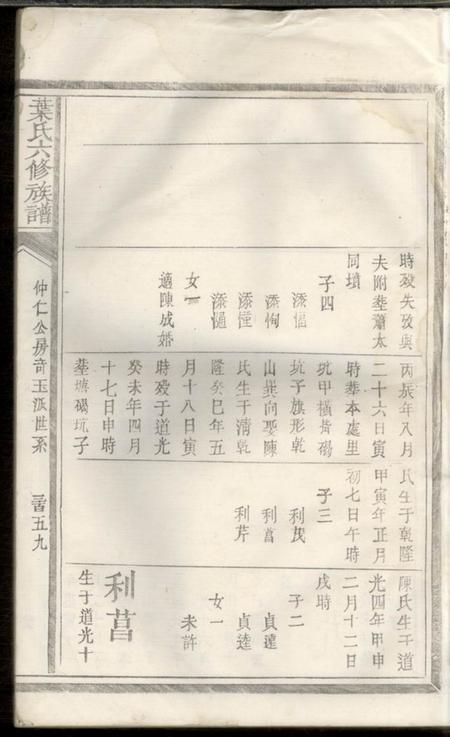 時殁失攷與
夫附塟蕭太
同墳
子四
添福
添恂
添憧
女一
適陳成婚
丙辰年八月
二十六日寅
時塟本處里
坑甲橫背磡
坑子旗形乾
山巽向娶陳
氏生于清乾
隆癸巳年五
月十八日寅
時殁于道光
癸未年四月
十七日申時
塟塘磡坑子
氏生于乾隆
甲寅年正月
初七日午時
子三
利茂
利菖
利芹
陳氏生于道
光四年甲申
二月十二日
戌時
子二
貞達
貞逵
女一
未許
利菖
生于道光十
葉氏六修族譜
仲仁公房奇玉派世系
五九